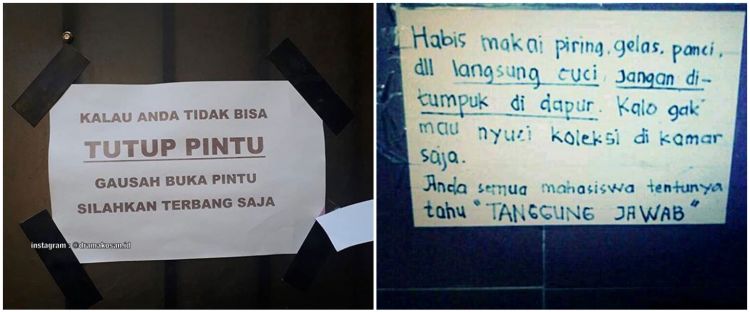 KALAU ANDA TIDAK BISA
TUTUP PINTU
GAUSAH BUKA PINTU
SILAHKAN TERBANG SAJA
instagram : @dramakosan.id
Habis makai piring, gelas, panci,
dll langsung cuci, jangan di-
tumpuk di dapur. Kalo gak
mau nyuci koleksi di kamar
saja.
Anda semua mahasiswa tentunya
tahu "TANGGUNG JAWAB"